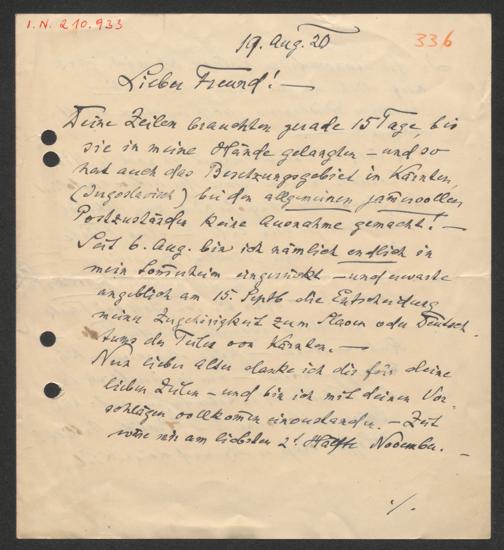 I.N. 210.933
336
19. Aug. 20
Lieber Freund! —
Deine Zeilen brauchten gerade 15 Tage bis
sie in meine Hände gelangten – und so
hat auch das Besetzungsgebiet in Kärnten,
(Jugoslavisch) bei den allgemeinen jammervollen
Postzuständen keine Ausnahme gemacht! —
Seit 6. Aug. bin ich nämlich endlich in
mein eingerückt – und erwarte
angeblich am 15. Septb die Entscheidung
meiner Zugehörigkeit zum Slaven oder Deutsch-
tums des Teiles von Kärnten. —
Nun lieber Alter danke ich dir für deine
lieben Zeilen – und bin ich mit deinen Vor-
schlägen vollkommen einverstanden. – Zeit
wäre mir am liebsten 2t. Hälfte November. –
./.